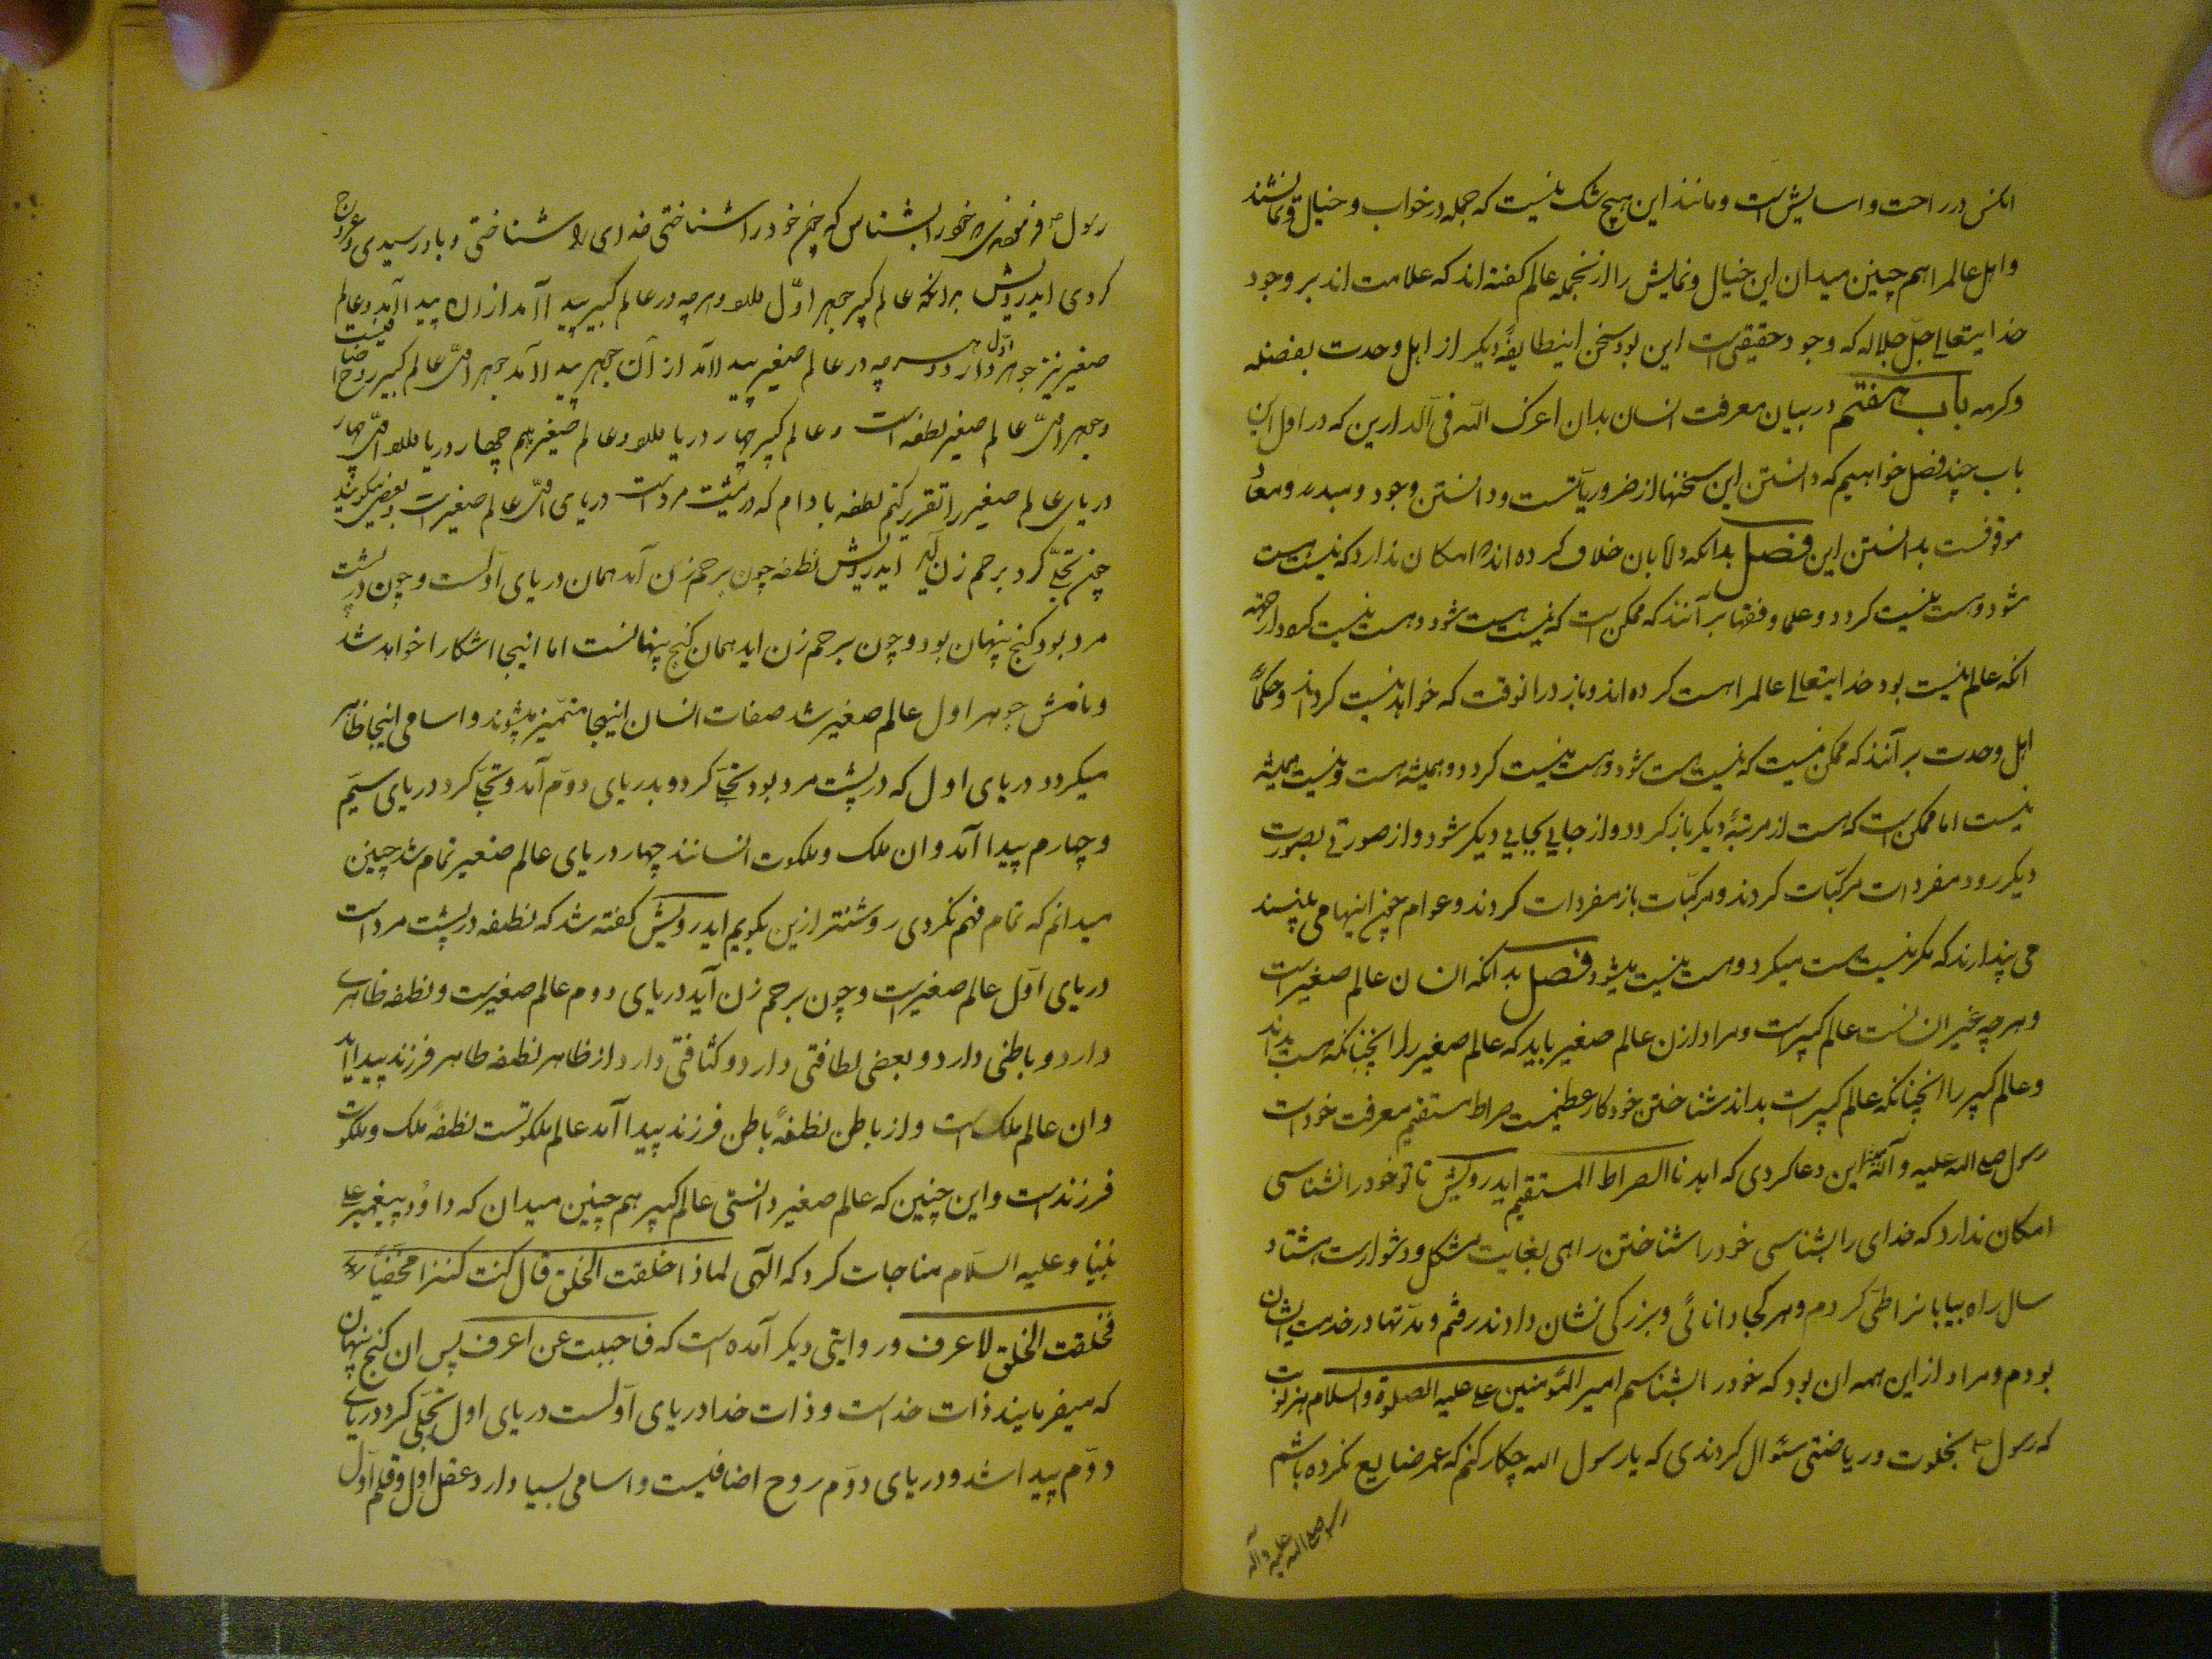 انکس در راحت و اسایش است و مانند این هیچ شک نیست که جمله در خواب و خیال و نمایشند
و اهل عالم را هم چنین میدان این خیال و نمایش را از نجمله عالم کفته اند که علامت اند بر وجود
خدایتعالی جل جلاله که وجود حقیقی است این بود سخن اینطایفهٔ دیکر از اهل وحدت بفضله
و کرمه باب هفتم در بیان معرفت انسان بدان اعزک الله فی الدارین که در اول این
باب چند فصل خواهیم که دانستن این سخنها از ضروریاتست و دانستن وجود و مبدء و معاد
موقوفست بدانستن این فصل بدانکه دانایان خلاف کرده اند امکان ندارد که نیست هست
شود و هست نیست کردد و علما و فقها بر آنند که ممکن است که نیست هست شود و هست نیست کردد از جهة
انکه عالم نیست بود خدایتعالی عالم را هست کرده اند و باز در انوقت که خواهد نیست کردند و حکما
اهل وحدت بر آنند که ممکن نیست که نیست هست شود و هست نیست کردد و همیشه هست و نیست همیشه
نیست اما ممکن است که هست از مرتبهٔ دیکر باز کردد و از جایی بجایی دیکر شود و از صورتی بصورت
دیکر رود مفردات مرکبات کردند و مرکبات باز مفردات کردند و عوام چون اینها می بینند
می پندارند که مکر نیست هست میکردد و هست نیست میشود فصل بدانکه انسان عالم صغیر است
و هر چه غیر انسانست عالم کبیر است و مراد ازن عالم صغیر باید که عالم صغیر را انچنانکه هست بداند
و عالم کبیر را انچنانکه عالم کبیر است بداند شناختن خود کار عظیمست صراط مستقیم معرفت خود است
رسول صلی الله علیه و آله این دعا کردی که اهدنا الصراط المستقیم ایدرویش تا تو خود را نشناسی
امکان ندارد که خدای را بشناسی خود را شناختن راهی بغایت مشکل و دشوار است هشتاد
سال راه بیابانرا طی کردم و هر کجا دانائی و بزرکی نشان دادند رفتم و مدتها در خدمت ایشان
بودم و مراد از این همه ان بود که خود را بشناسم امیر المؤمنین علی علیه الصلوة و السلام هر نوبت
که رسول ص بخلوت و ریاضتی سئوال کردندی که یا رسول الله چکار کنم که عمر ضایع نکرده باشم
رسول صلی الله علیه و آله
رسول ص فرمودی خود را بشناس که چون خود را شناختی خدای را شناختی و بادر سیدی و عروج
کردی ایدرویش بدانکه عالم کبیر جوهر اول دارد و هر چه در عالم کبیر پیدا آمد ازان پیدا آمد و عالم
صغیر نیز جوهر اول دارد و هر چه در عالم صغیر پیدا آمد از آن جوهر پیدا آمد جوهر اول عالم کبیر روح اضافیست
و جوهر اول عالم صغیر نطفه است و عالم کبیر چهار دریا دارد و عالم صغیر هم چهار دریا دارد اول چهار
دریای عالم صغیر را تقریر کنم نطفه بادام که در پشت مرد است دریای اول عالم صغیر است و بعضی میکویند
چون تجلی کرد برحم زن آید ایدرویش نطفه چون برحم زن آمد همان دریای اولست و چون در پشت
مرد بود کنج پنهان بود و چون برحم زن اید همان کنج پنهانست اما اینجا اشکارا خواهد شد
و نامش جوهر اول عالم صغیر شد صفات انسان اینجا متمیز میشوند و اسامی اینجا ظاهر
میکردد دریای اول که در پشت مرد بود تجلی کرد و بدریای دوم آمد و تجلی کرد دریای سیم
و چهارم پیدا آمد و ان ملک و ملکوت انسانند چهار دریای عالم صغیر تمام شد چنین
میدانم که تمام فهم نکردی روشنتر ازین بکویم ایدرویش کفته شد که نطفه در پشت مرد است
دریای اول عالم صغیر است و چون برحم زن آید دریای دوم عالم صغیر است و نطفه ظاهری
دارد و باطنی دارد و بعضی لطافتی دارد و کثافتی دارد از ظاهر نطفه ظاهر فرزند پیدا اید
و ان عالم ملک است و از باطن نطفهٔ باطن فرزند پیدا آمد عالم ملکوتست نطفهٔ ملک و ملکوت
فرزند است و این چنین که عالم صغیر دانستی عالم کبیر هم چنین میدان که داود پیغمبر علی
نبینا و علیه السلام مناجات کرد که الهی لماذا خلقت الخلق قال کنت کنزا مخفیا
فخلقت الخلق لاعرف و روایتی دیکر آمده است که فاحببت عن اعرف پس ان کنج پنهان
که میفرمایند ذات خداست و ذات خدا دریای اولست دریای اول تجلی کرد دریای
دوم پیدا شد و دریای دوم روح اضافیست و اسامی بسیار دارد عقل اول و قلم اول